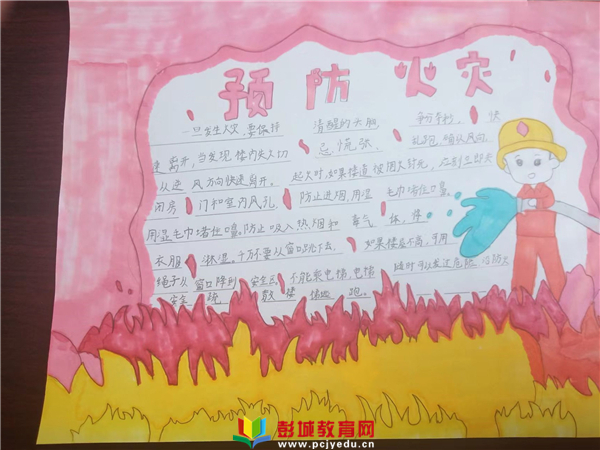 预防火灾
一旦发生火灾,要保持 清醒的头脑 争分夺秒, 快
速离开,当发现楼内失火切 忌慌张、 乱跑,
从逆 风方向快速离开。 起火时,如果楼道被大封死,应到立即关
闭房 门和室内风孔, 防止进烟,用湿 毛巾堵住口鼻,
用湿毛巾堵住口鼻。防止吸入热烟和 毒气
衣服 淋湿。千万不要从窗口跳下去。 如果楼层不高,可用
绳子从 窗口降到 安全区 不能乘电梯,电梯 随时可以发生危险
安全 疏散 楼梯 跑。
彭城教育网
www.pcjyedu.cn